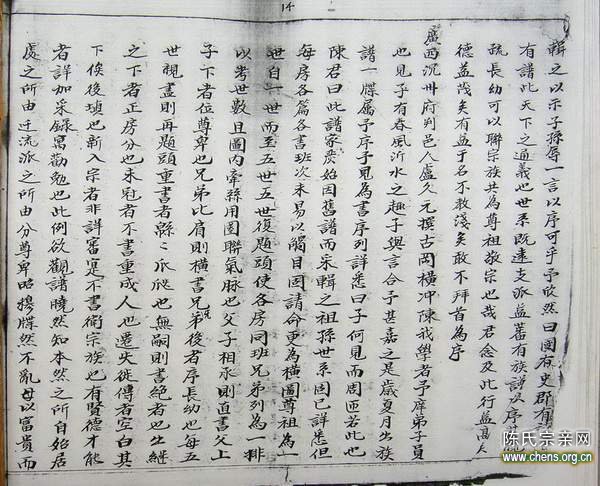 14
輯之以示子孫辱一言以序可乎予欣然曰國有史郡有誌家
有譜此天下之通義也世系既遠支派益蕃有族譜以序其
疏長幼可以聯宗族共為尊祖敬宗也哉君念及此行益高矣
德益茂矣有益于名不敢淺矣敢不拜首為序
廣西沉卅府判邑人盧久元撰古岡橫冲陳我學者予庠弟子員
也見子有春風沂水之趣子與言合予甚嘉之是歲夏月出族
譜一牒屬予序予見為書序列詳悉曰子何見而周匝若此也
陳君曰此譜家嚴始因舊譜而朱輯之祖孫世系固已詳悉但
每房各篇各書班次未易以觸目因請命更為橫圖尊祖為一
世自一世而至五世五世復題頭使各房同班兄弟列為一排
以考世數且圖內牽絲用圖聯氣脉也父子相承則直書父上
子下者位尊卑也兄弟比肩則橫書兄弟後者序長幼也每五
世視畫則再題頭重書者緜緜瓜瓞也無嗣則書絕者也出繼
之下者正房分也未冠者不書重成人也遷失徙傳者空白其
下俟後瑣也新入宗者非詳審寔不書衛宗族也有賢德才能
者詳加采錄寓勸勉也此例欲觀譜曉然知本然之所自始居
處之所由迁流派之所由分尊卑昭穆牒然不亂毋以富貴而
陈氏宗亲网
www.chens.org.cn